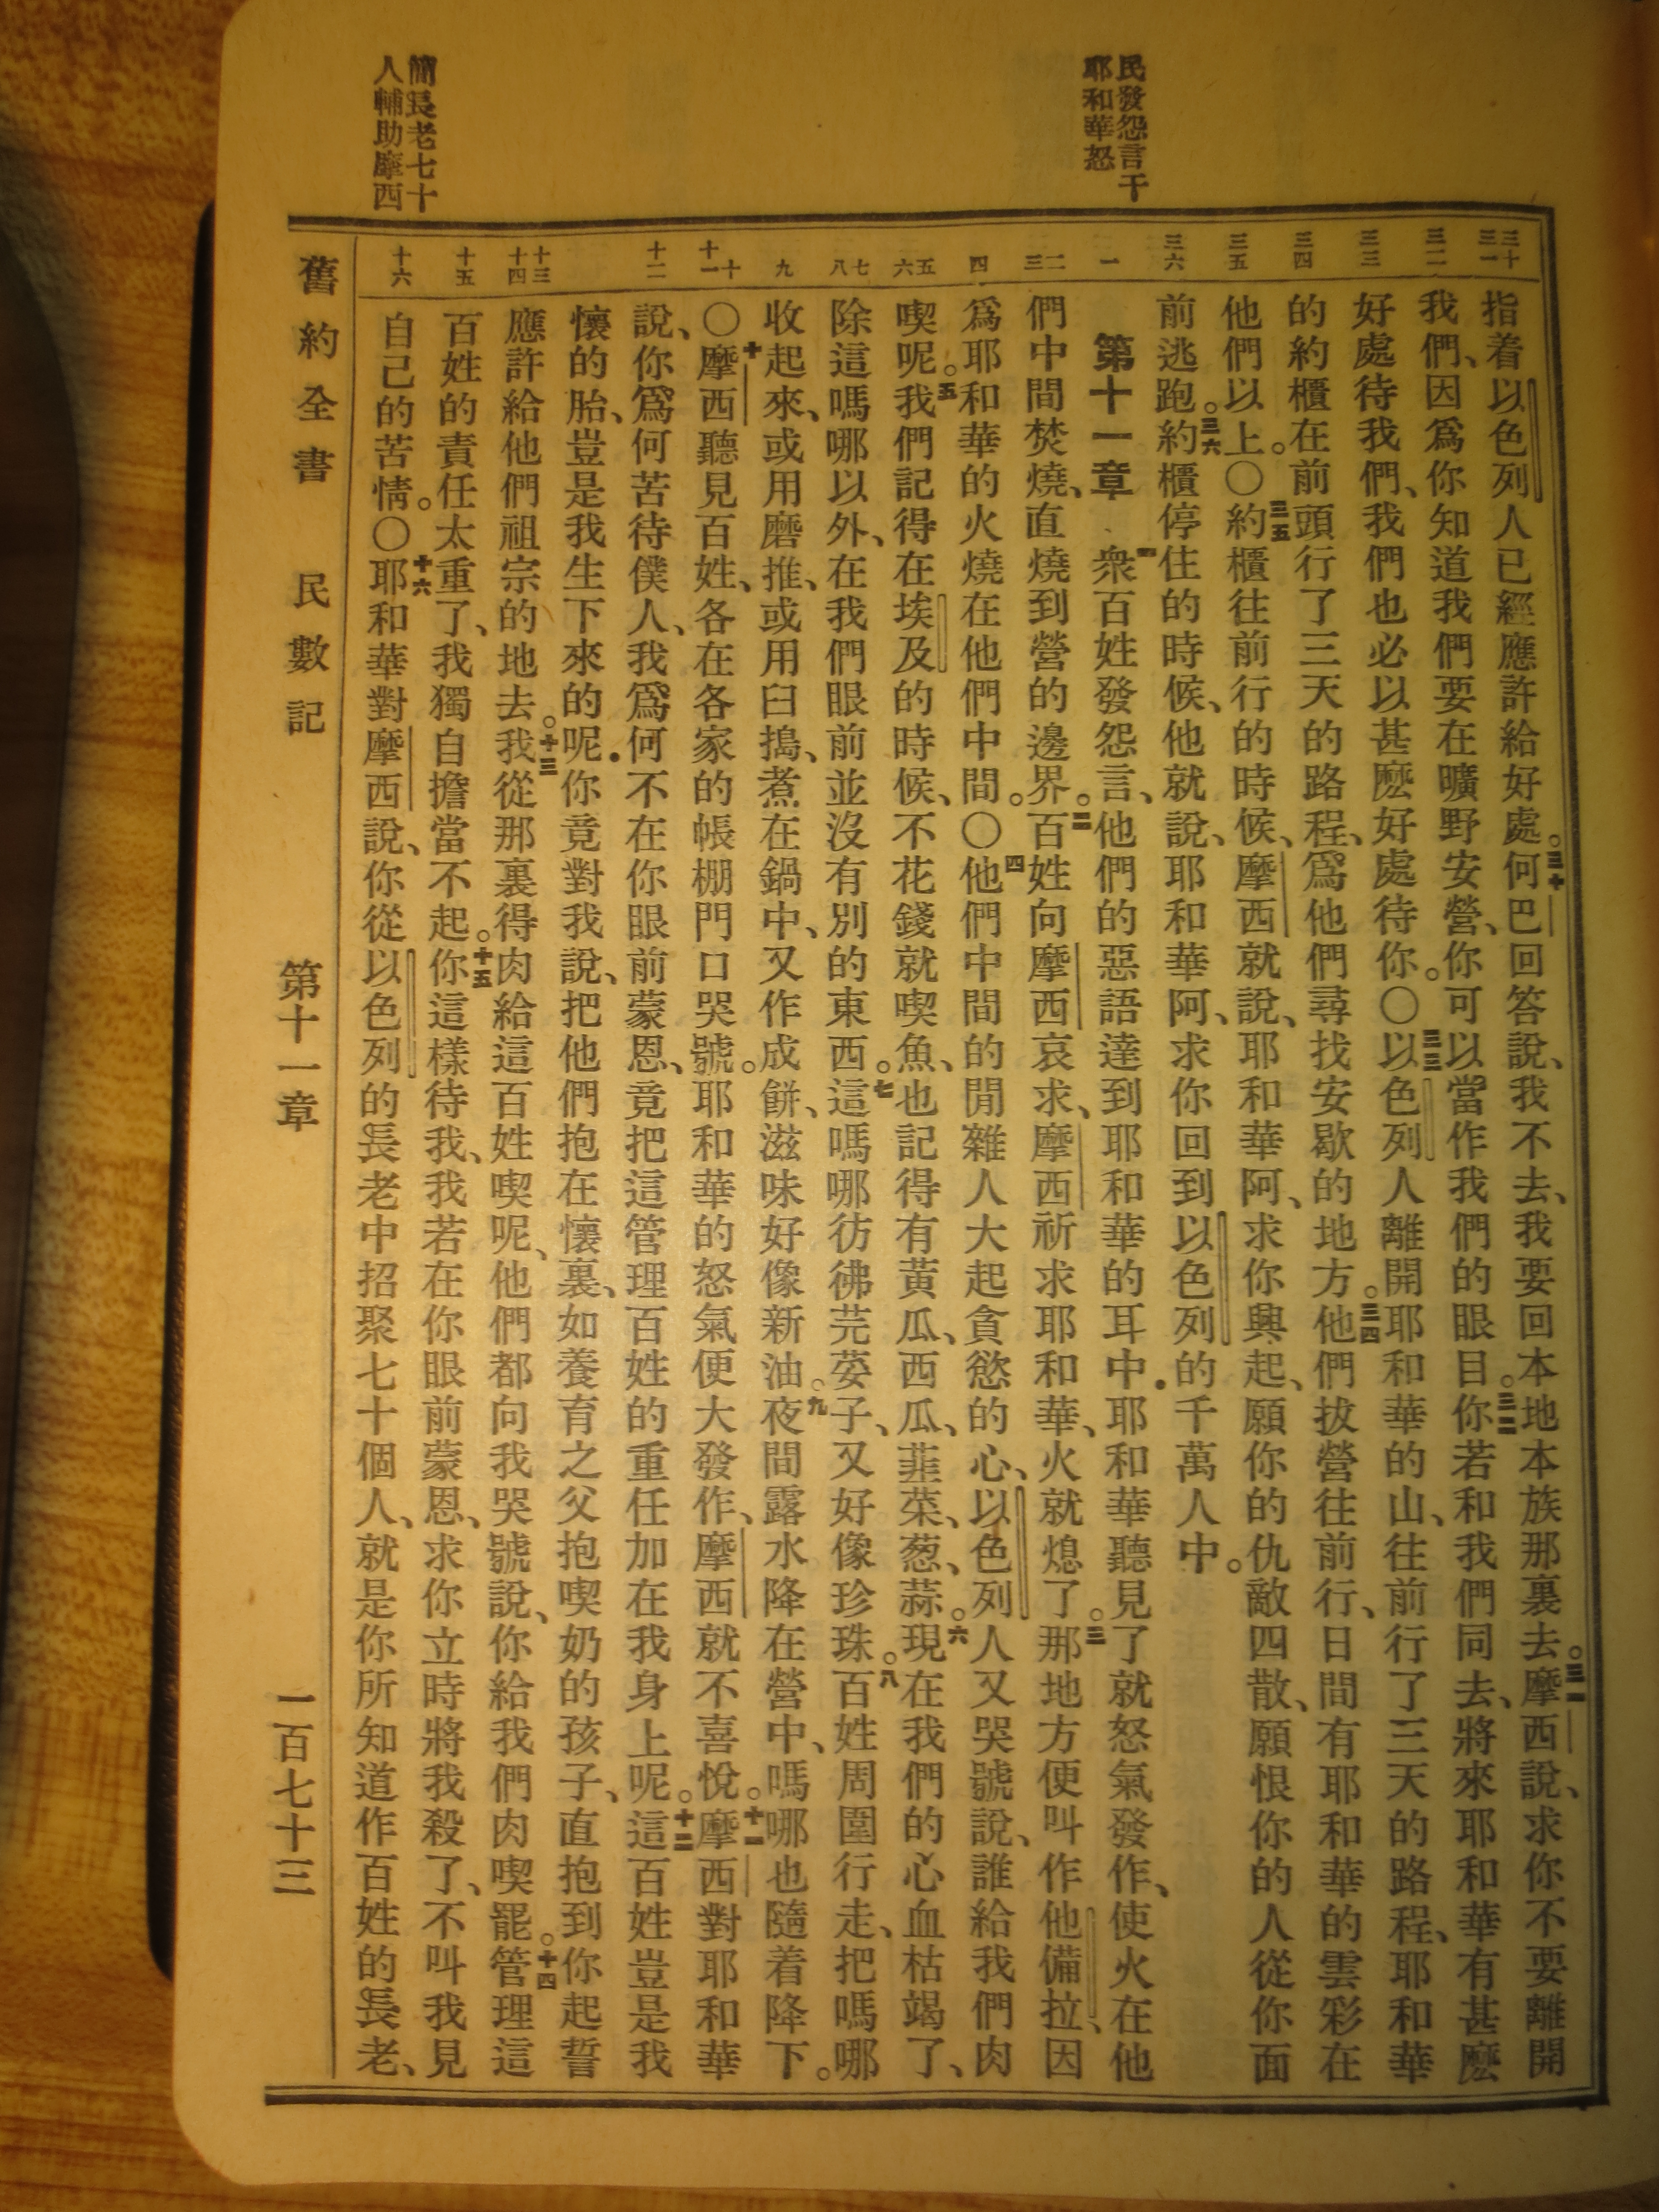 民發怨言干
耶和華怒
簡長老七十
人輔助摩西
三十
三一
三二
三三
三四
三五
三六
一
二
三
四
五
六
七
八
九
十
十一
十二
十三
十四
十五
十六
指着以色列人已經應許給好處。三十何巴回答說、我不去、我要回本地本族那裏去。三一摩西說、求你不要離開
我們、因爲你知道我們要在曠野安營、你可以當作我們的眼目。三二你若和我們同去、將來耶和華有甚麽
好處待我們、我們也必以甚麽好處待你。〇三三以色列人離開耶和華的山、往前行了三天的路程、耶和華
的約櫃在前頭行了三天的路程、爲他們尋找安歇的地方。三四他們拔營往前行、日間有耶和華的雲彩在
他們以上。〇三五約櫃往前行的時候、摩西就說、耶和華阿、求你興起、願你的仇敵四散、願恨你的人從你面
前逃跑。三六約櫃停住的時候、他就說、耶和華阿、求你回到以色列的千萬人中。
第十一章 一衆百姓發怨言、他們的惡語達到耶和華的耳中．耶和華聽見了就怒氣發作、使火在他
們中間焚燒、直燒到營的邊界。二百姓向摩西哀求、摩西祈求耶和華、火就熄了。三那地方便叫作他備拉、因
爲耶和華的火燒在他們中間。〇四他們中間的閒雜人大起貪慾的心、以色列人又哭號說、誰給我們肉
喫呢。五我們記得在埃及的時候、不花錢就喫魚、也記得有黃瓜、西瓜、韮菜、葱、蒜。六現在我們的心血枯竭了、
除這嗎哪以外、在我們眼前並沒有別的東西。七這嗎哪彷彿芫荽子、又好像珍珠。八百姓周圍行走、把嗎哪
收起來、或用磨推、或用臼搗、煮在鍋中、又作成餅、滋味好像新油。九夜間露水降在營中、嗎哪也隨着降下。
〇十摩西聽見百姓、各在各家的帳棚門口哭號。耶和華的怒氣便大發作、摩西就不喜悅。十一摩西對耶和華
說、你爲何苦待僕人、我爲何不在你眼前蒙恩、竟把這管理百姓的重任加在我身上呢。十二這百姓豈是我
懷的胎、豈是我生下來的呢．你竟對我說、把他們抱在懷裏、如養育之父抱喫奶的孩子、直抱到你起誓
應許給他們祖宗的地去。十三我從那裏得肉給這百姓喫呢、他們都向我哭號說、你給我們肉喫罷。十四管理這
百姓的責任太重了、我獨自擔當不起。十五你這樣待我、我若在你眼前蒙恩、求你立時將我殺了、不叫我見
自己的苦情。〇十六耶和華對摩西說、你從以色列的長老中招聚七十個人、就是你所知道作百姓的長老、
舊約全書 民數記 第十一章 一百七十三